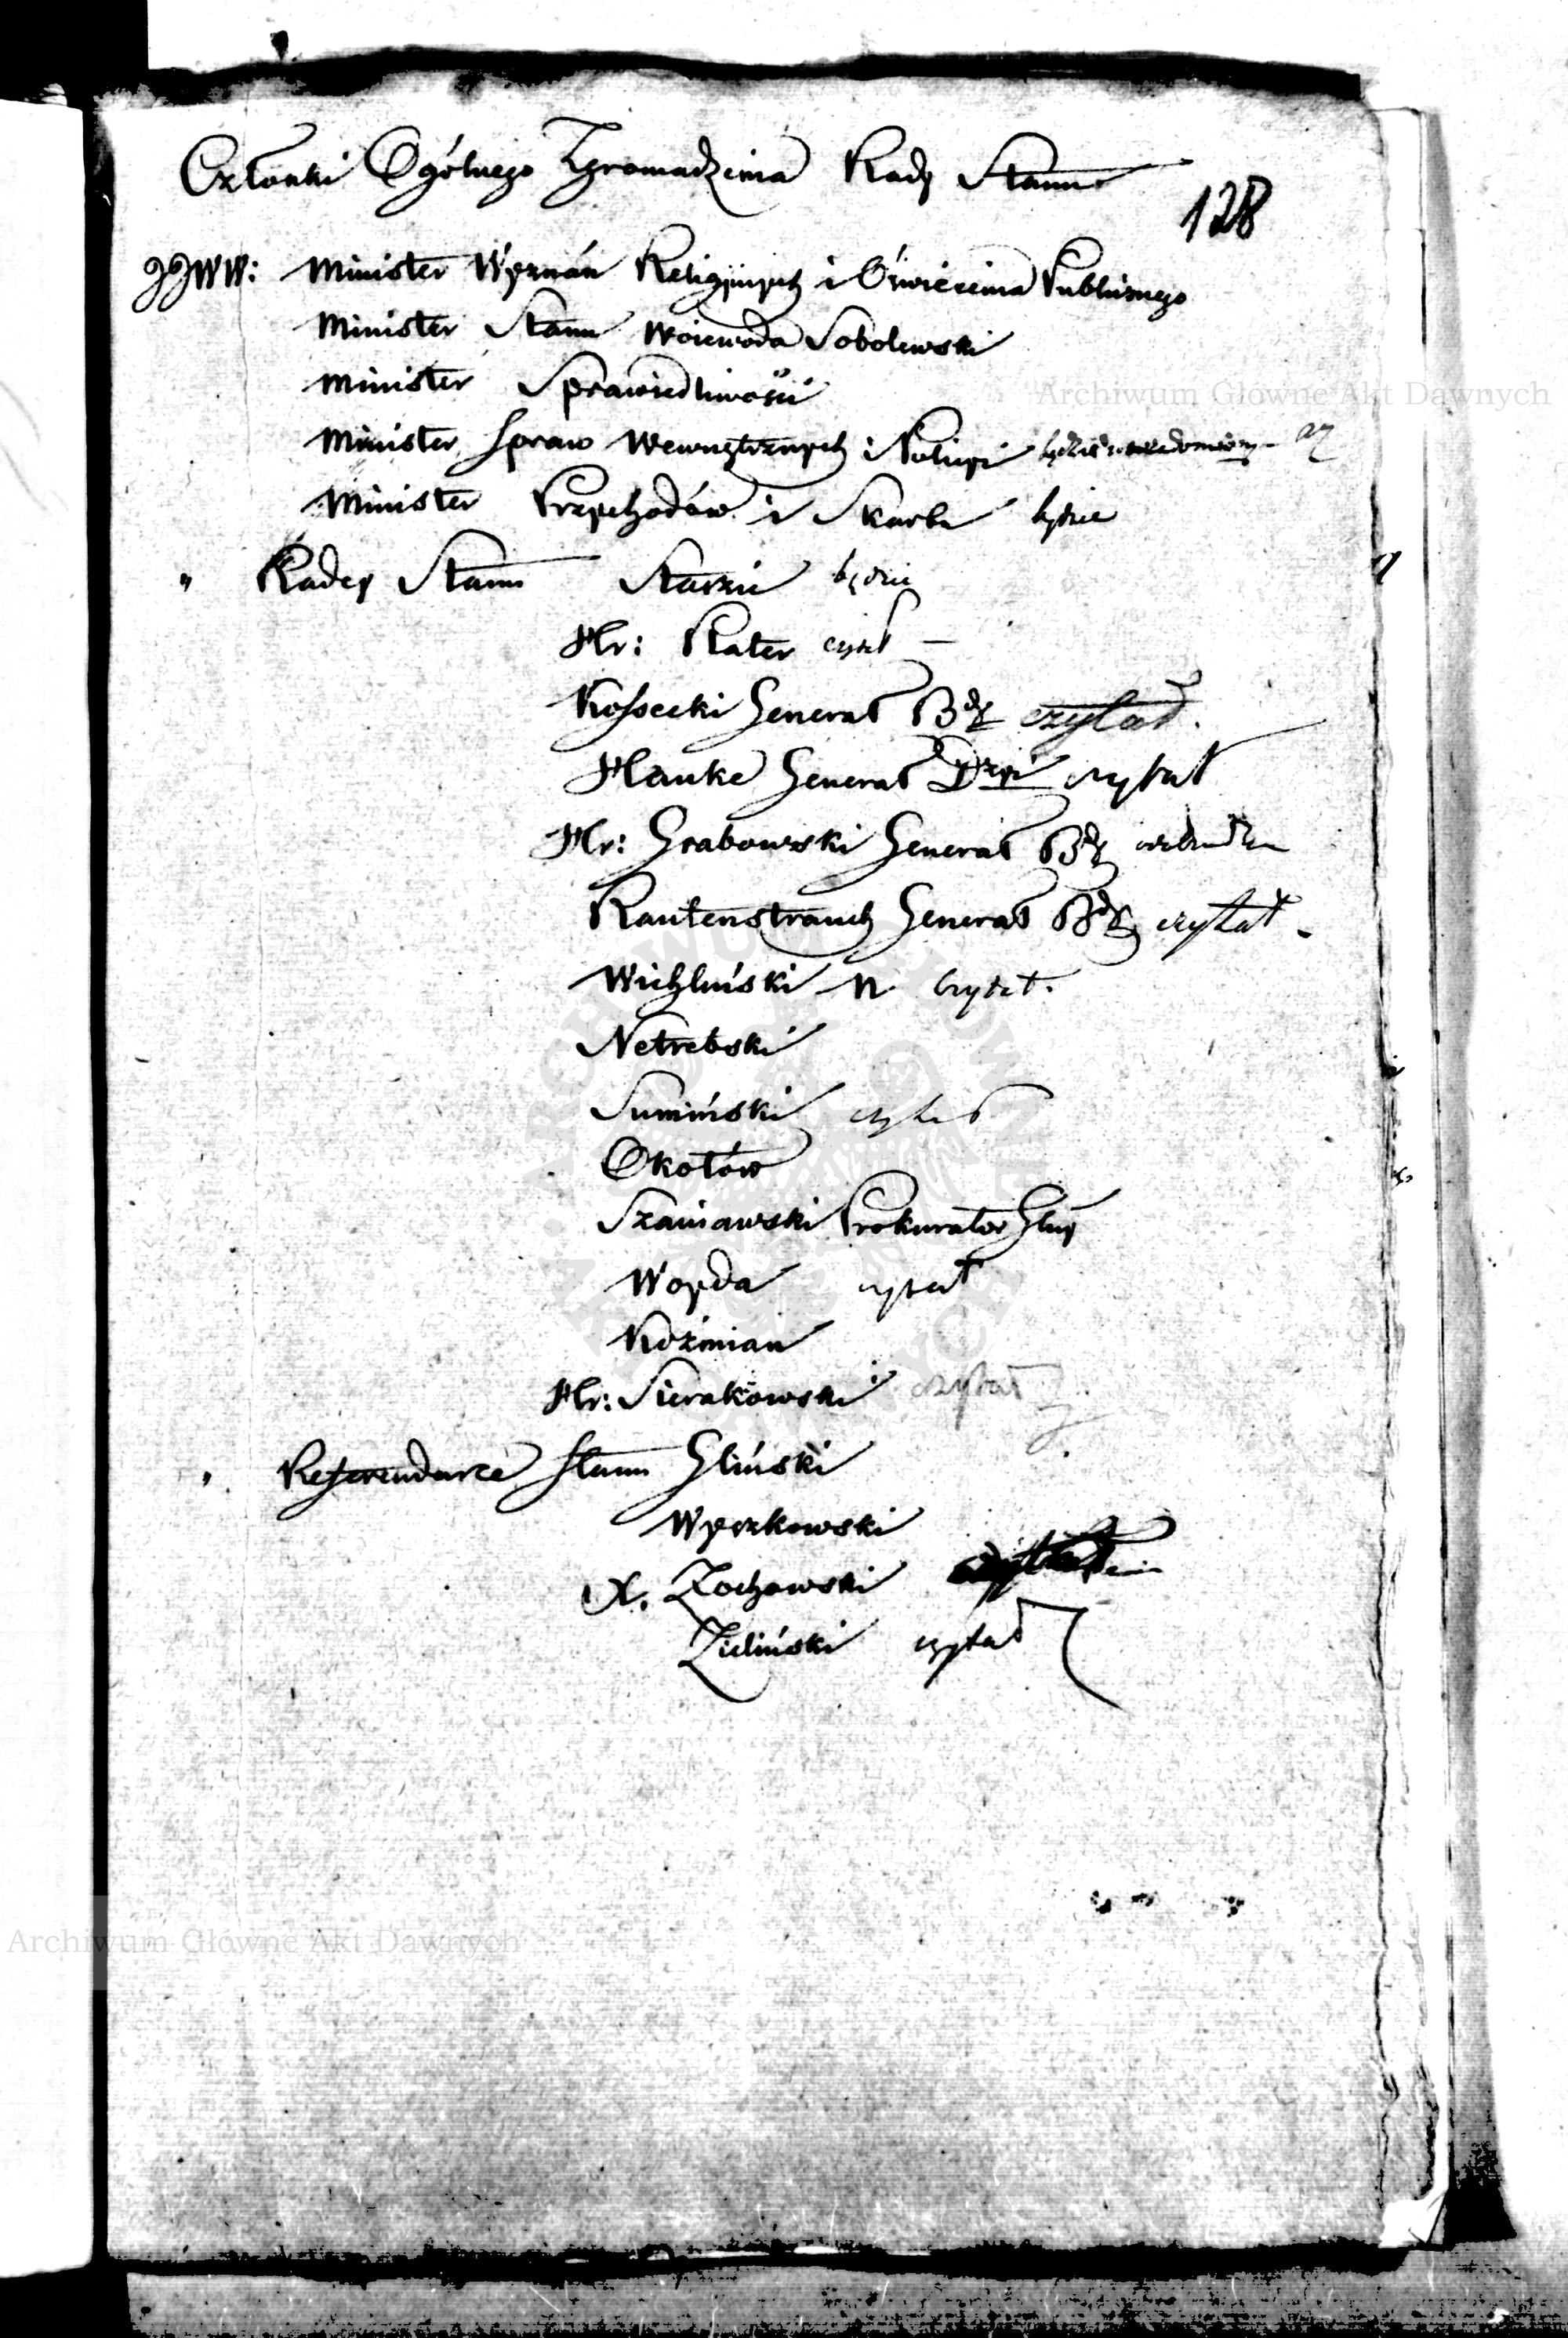 Członki Ogólnego Zgromadzenia Rady Stanu
128
JJWW: Minister Wyznań Religijnych i Oświecenia Publicznego
Minister Stanu Woiewoda Sobolewski
Minister Sprawiedliwości
Archiwum Główne Akt Dawnych
Minister Spraw Wewnętrznych i Policyi
Minister Przychodów i Skarbu będzie
" Radcy Stanu Staszic będzie
Hr: Plater czytał —
Kossecki Generał Bdy czytał.
Hauke Generał Dyzyi czytał
Hr: Grabowski Generał Bdy
Rautenstrauch Generał Bdy czytał -
Wichliński N czytał.
Netrebski
Sumiński czytał
Okołów
Szaniawski Prokurator Glny
Woyda czytał
Koźmian
Hr: Sierakowski czytał
" Referendarze Stanu Gliński
Wyszkowski
X. Zochowski
Zieliński czytał
Archiwum Główne Akt Dawnych